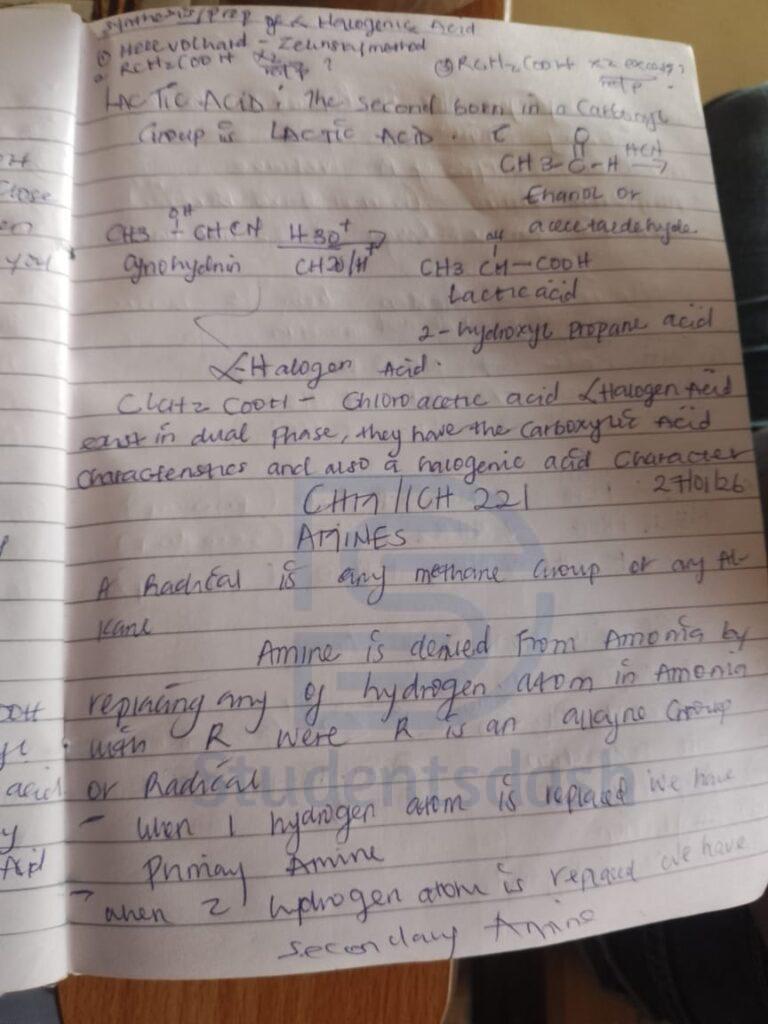 Synthesis/Prep of α Halogenic Acid
① Hell Volhard - Zelinsky method
RCH2COOH X2 red p ?
② RCH2COOH X2 excess ? red p
LACTIC ACID: The second born in a Carboxyl
Group is LACTIC ACID.
O
CH3-C-H HCN
Ethanol or
acecetaedehyde
OH
CH3 - CHCN H3O+
cynohydrin CH2O/H+
OH
CH3 CH-COOH
Lactic acid
2-hydroxyl propane acid
α-Halogen Acid.
ClCH2 COOH - Chloro acetic acid αHalogen Acid
exist in dual phase, they have the Carboxylic Acid
Characteristics and also a halogenic acid Character
27/01/26
CHM/ICH 221
AMINES
A Radical is any methane Group or any Al-
kane
Amine is derived From Amonia by
replacing any of hydrogen atom in Amonia
with R were R is an alkyne Group
or Radical
Studentsdash
- when 1 hydrogen atom is replaced we have
Primay Amine
- when 2 hydrogen atom is replaced we have
secondary Amine
OH
Close
en
you
OOH
yl
acid
y
Acid